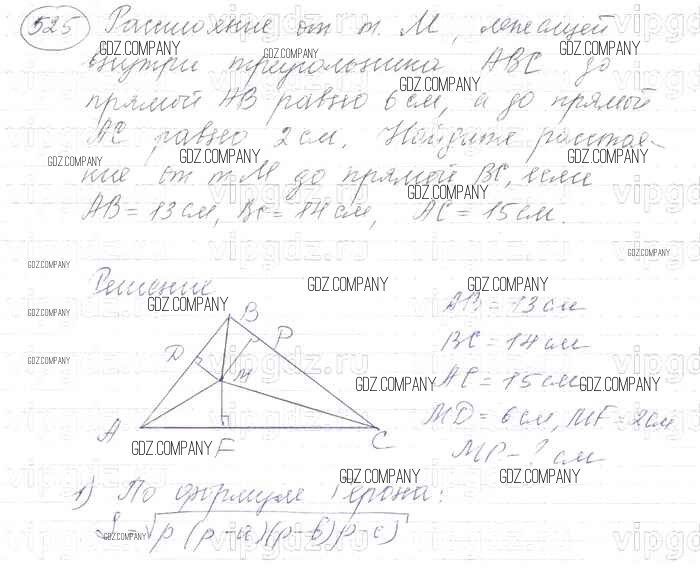 525 Расстояние от т. M, лежащей
внутри треугольника ABC до
прямой AB равно 6 см, а до прямой
AC равно 2 см. Найдите расстоя-
ние от т. M до прямой BC, если
AB = 13 см, BC = 14 см, AC = 15 см.
Решение
AB = 13 см
BC = 14 см
AC = 15 см
MD = 6 см, MF = 2 см
MP - ? см
B
D
P
M
A
F
C
1) По формуле Герона:
S = √p(p-a)(p-b)(p-c)
GDZ.COMPANY
vipgdz.ru